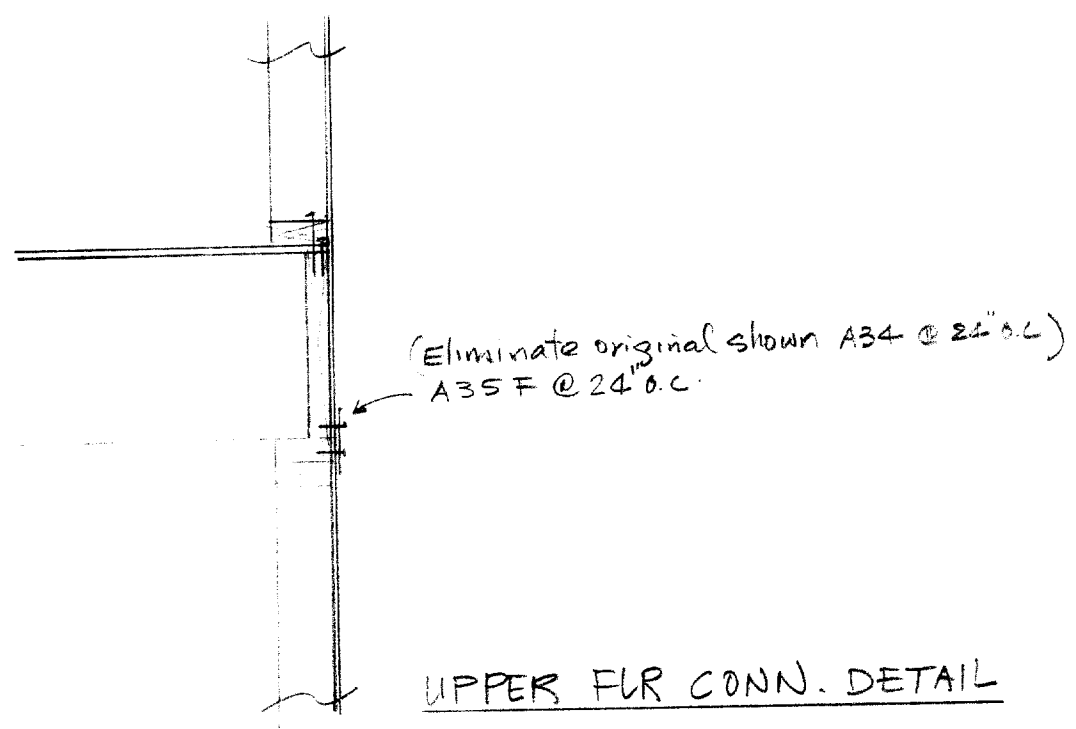 (Eliminate original shown A34 @ 24" O.C)
A35F @ 24" O.C.
UPPER FLR CONN. DETAIL